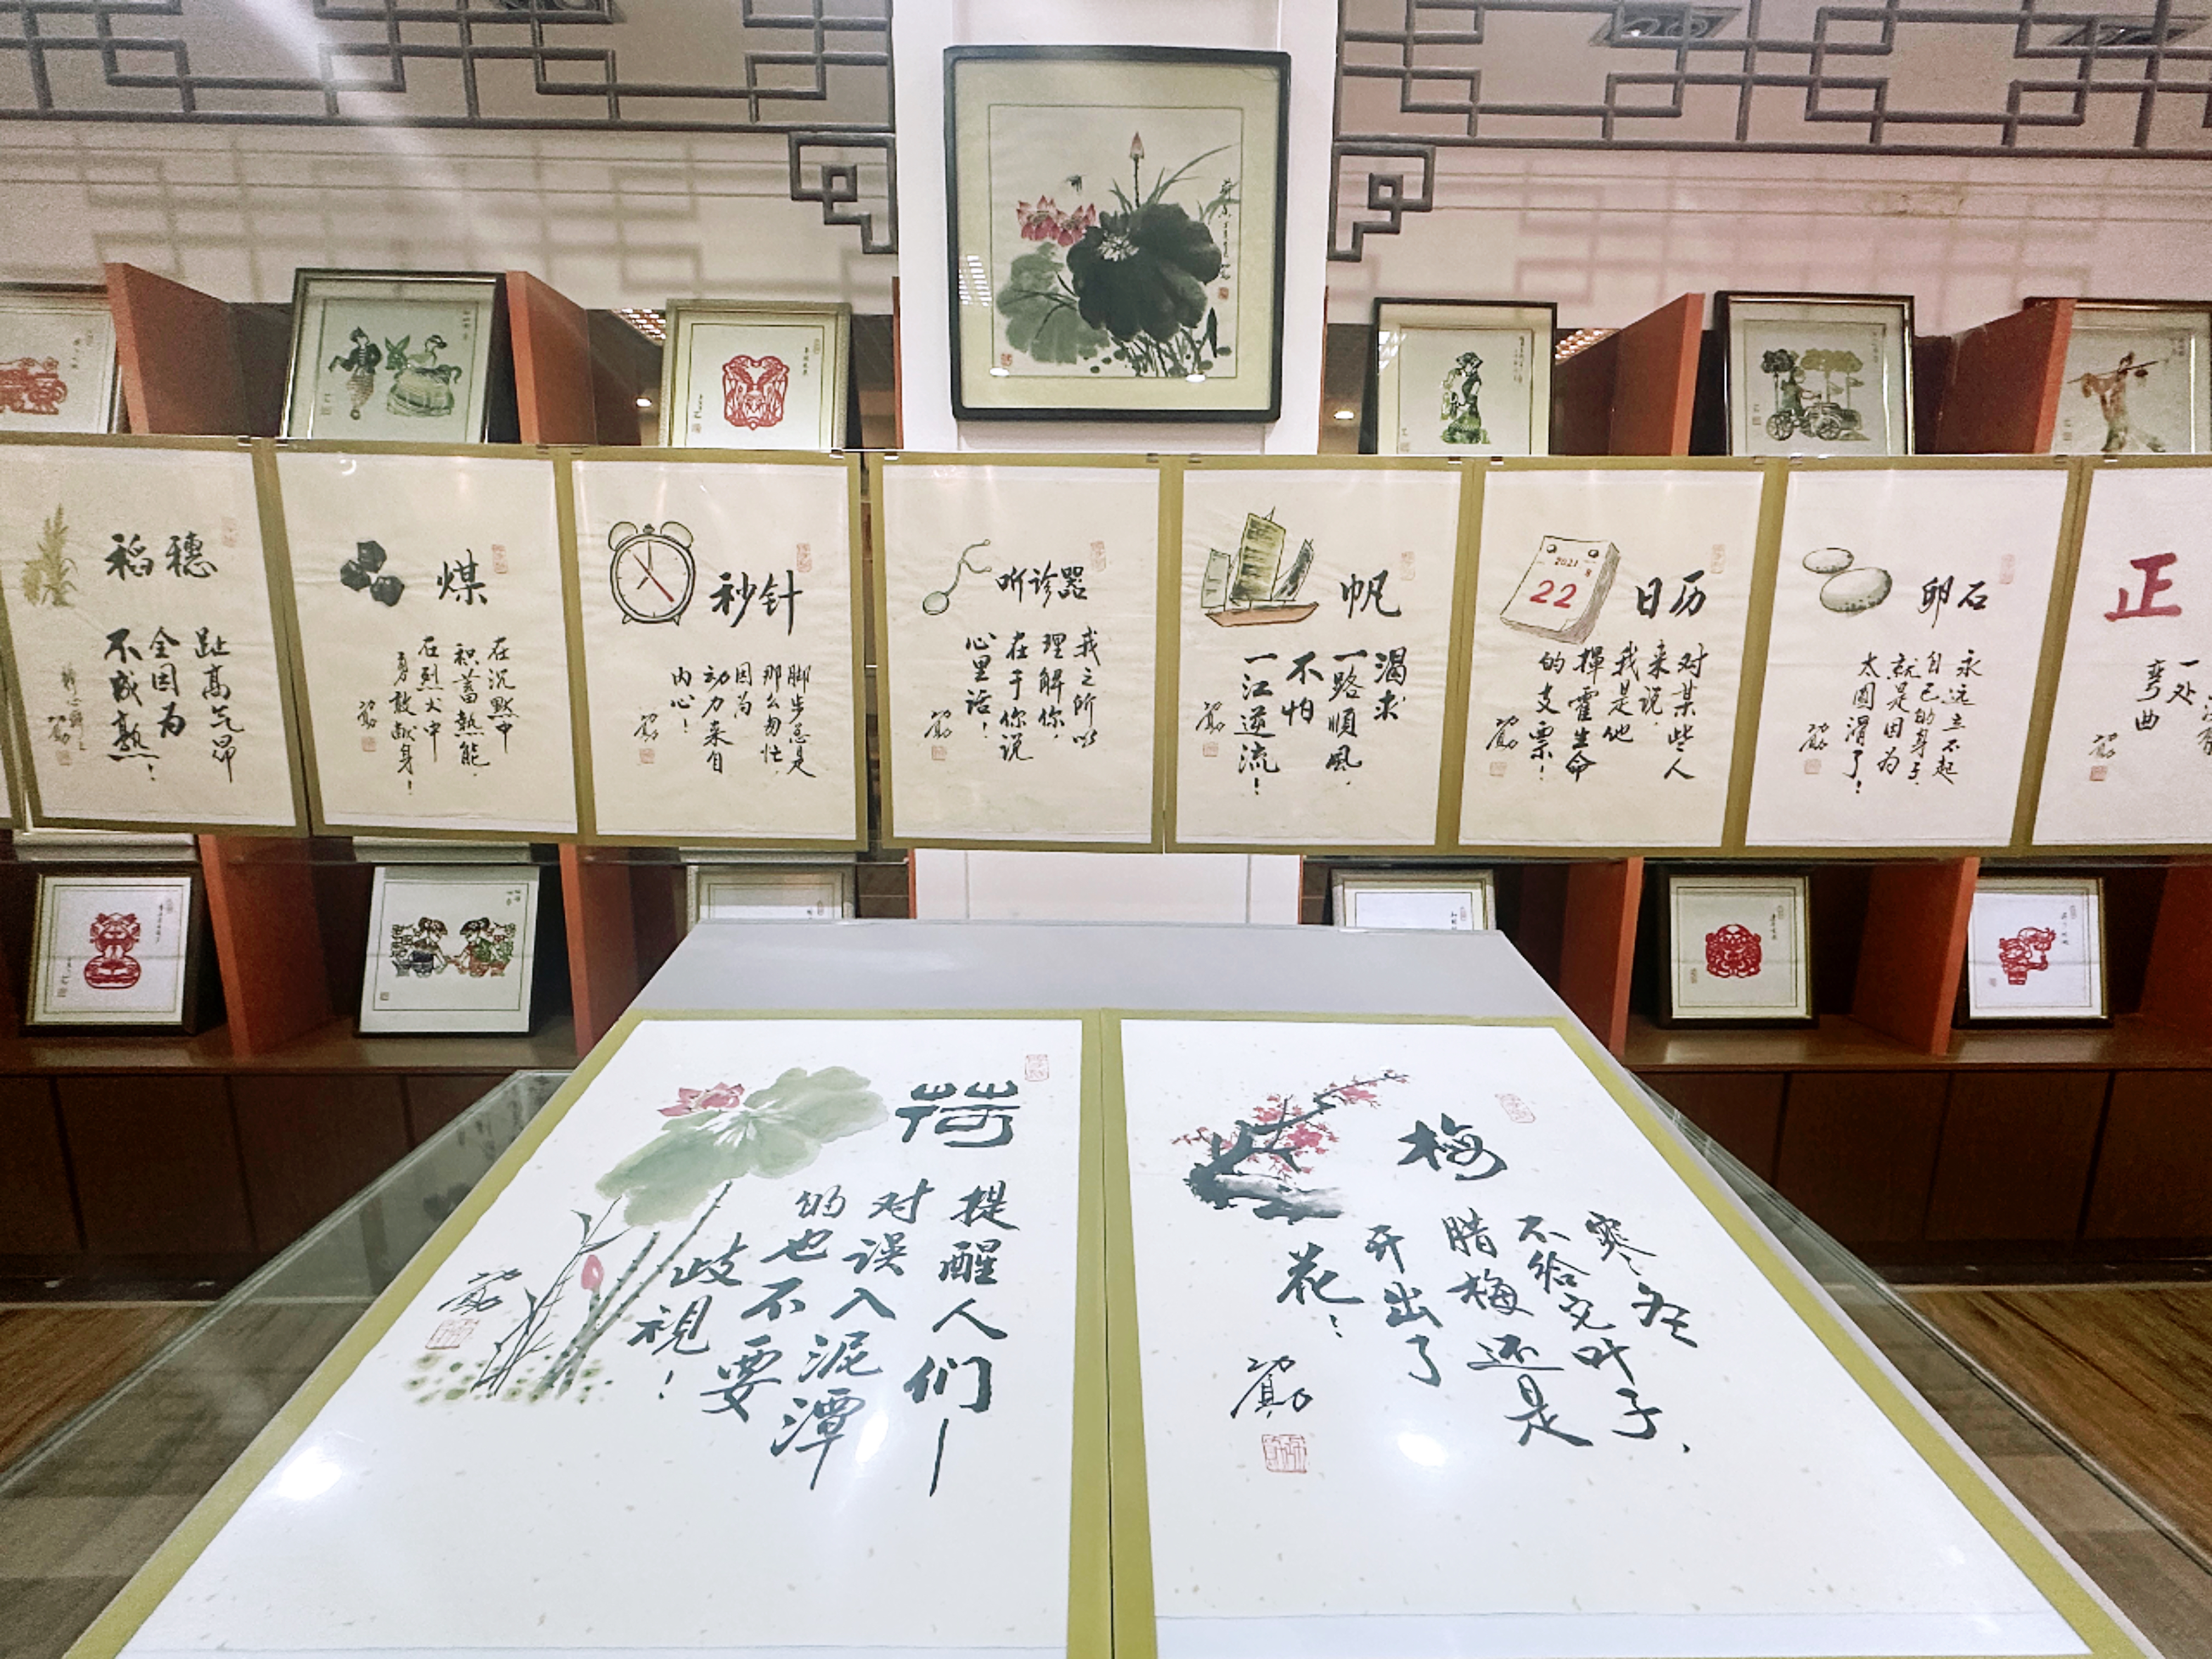 稻穗
趾高气昂
全因为
不成熟！
煤
在沉默中
积蓄熱能，
在烈火中
勇敢献身！
秒针
脚步总是
那么匆忙，
因为
动力来自
内心！
听诊器
我之所以
理解你，
在于你说
心里话！
帆
渴求
一路順風，
不怕
一江逆流！
2021
22
日历
对某些人
来说，
我是他
揮霍生命
的支票！
卵石
永远立不起
自己的身子，
就是因为
太圆滑了！
正
一处
弯曲
荷
提醒人们—
对误入泥潭
的也不要
歧視！
梅
寒冬
不给它叶子，
腊梅还是
开出了
花！